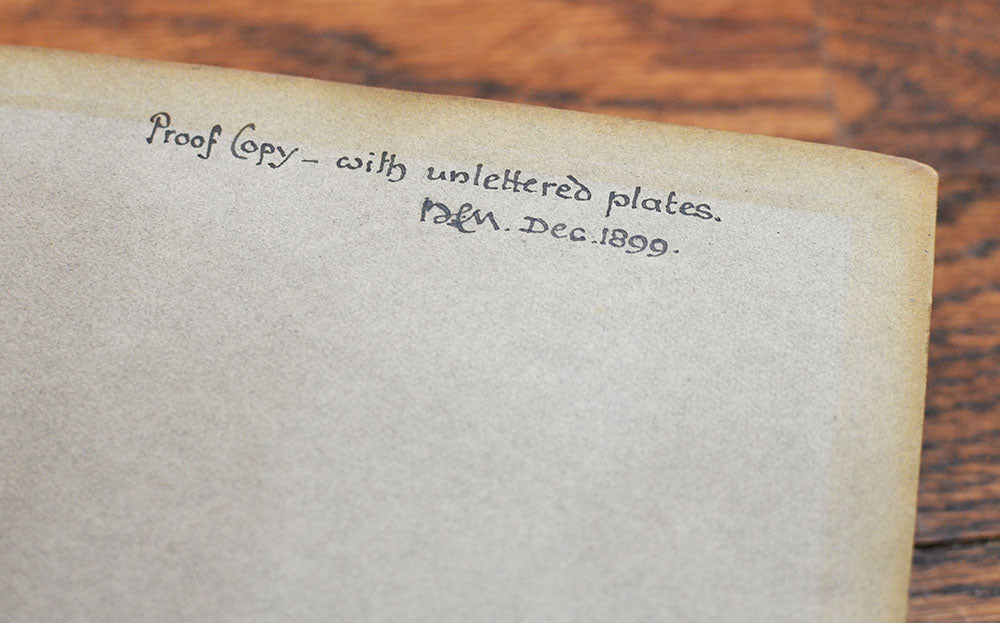 Proof Copy – with unlettered plates.
Dec. 1899.